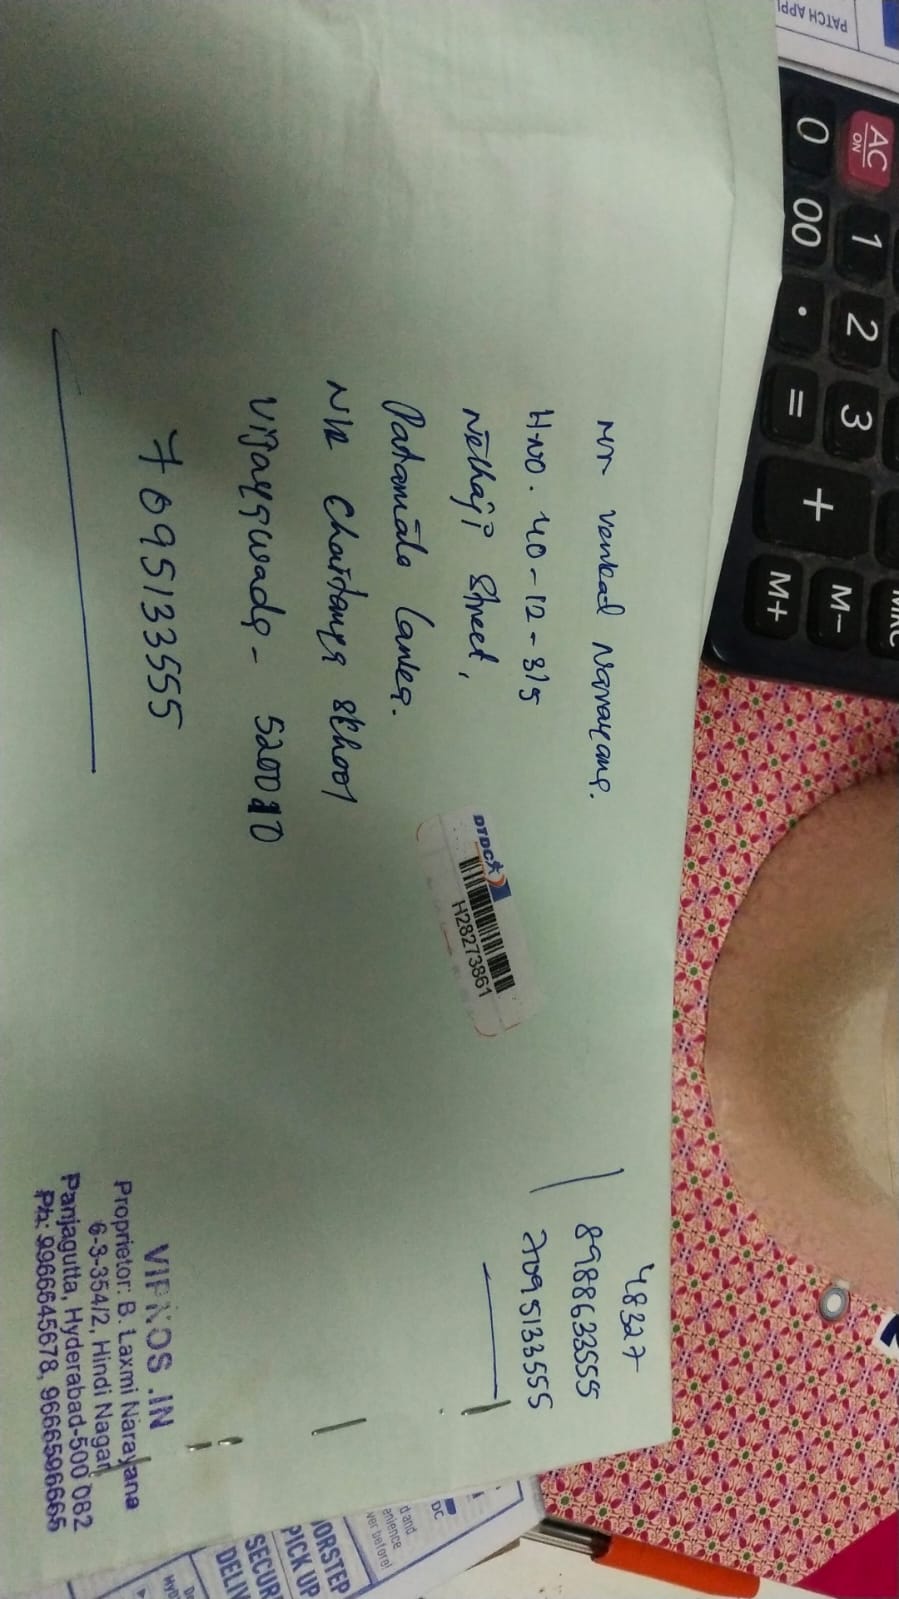 Mr Venkat Narayana.
H.No. 40-12-315
Nethaji Street,
Patamata Lanka.
N/R Chaitanya School
Vijayawada - 520010
7095133555
DTDC
H28273861
48327
8988633555
7095133555
VIPNOS.IN
Proprietor: B. Laxmi Narayana
6-3-354/2, Hindi Nagar
Panjagutta, Hyderabad-500 082
Ph: 9966645678, 9666596665
AC
ON
0
00
.
=
+
M+
1
2
3
M-
PATCH
DC
d and
enience
ver before!
ORSTEP
PICK UP
SECUR
DELIV